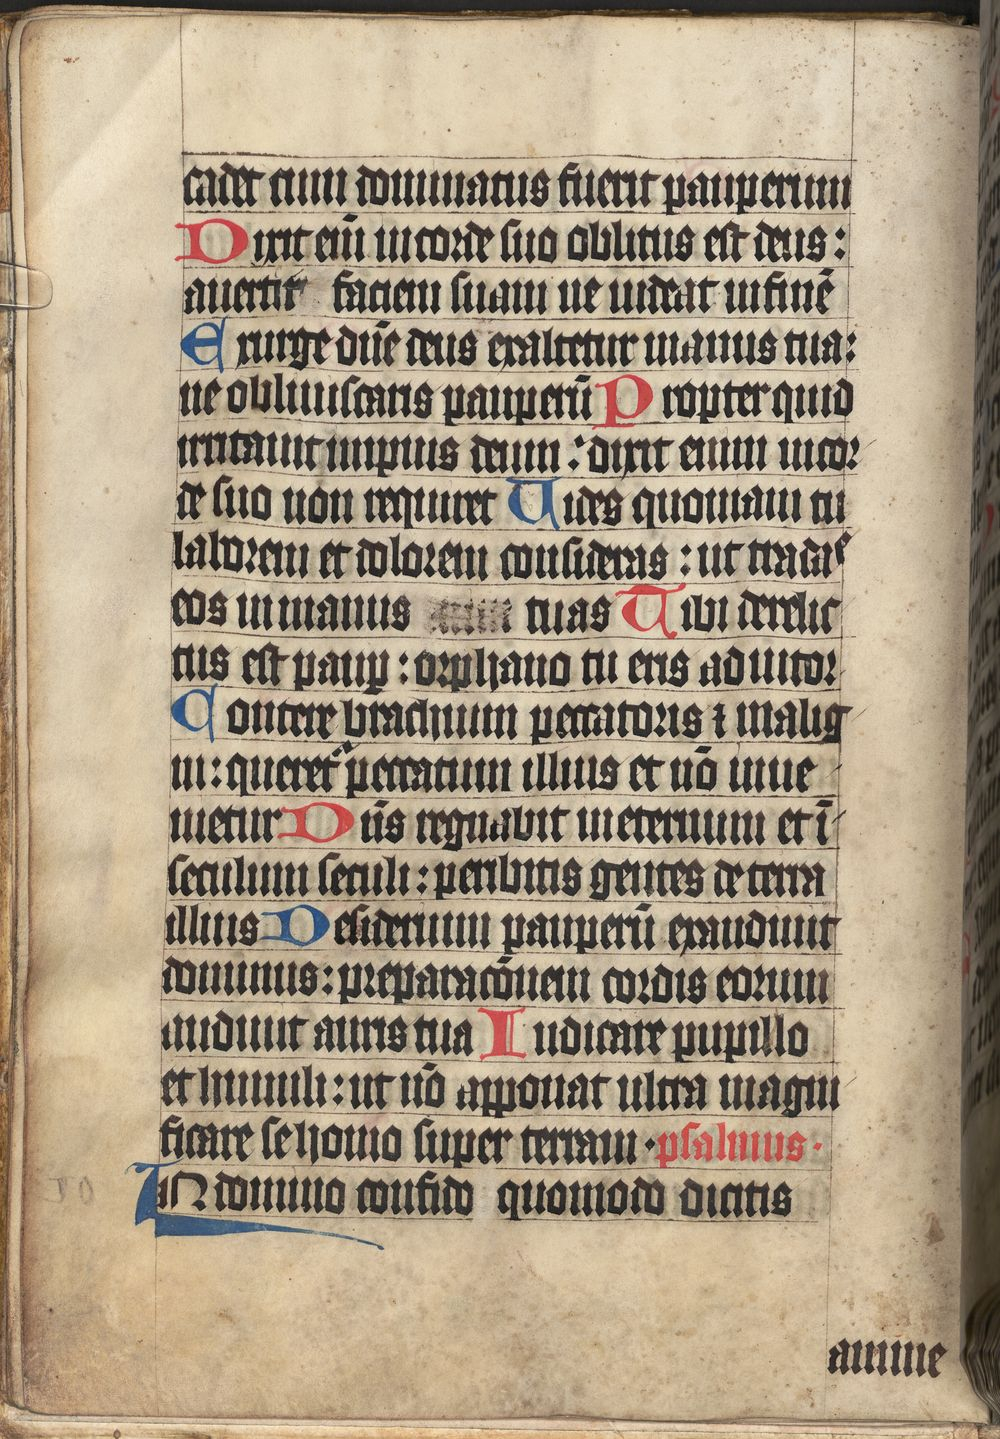 cadet cum dominatus fuerit pauperum
Dixit eni̅ in corde suo oblitus est deus:
auertit faciem suam ne uideat in fine̅
Exurge dn̅e deus exaltetur manus tua:
ne obliuiscaris pauperu̅ Propter quid
irritauit impius deum: dixit enim in cor
de suo non requiret Uides quoniam tu
laborem et dolorem consideras: ut tradas
eos in manus tuas Tibi derelic
tus est paup̱: orphano tu eris adiutor
Contere brachium peccatoris ⁊ malig
ni: queret᷑ peccatum illius et no̅ inue
nietur Dn̅s regnabit in eternum et i̅
seculum seculi: peribitis gentes de terra
illius Desiderium pauperu̅ exaudiuit
dominus: preparaco̅nem cordis eorum
audiuit auris tua Iudicare pupillo
et humili: ut no̅ apponat ultra magni
ficare se homo super terram · psalmus ·
IN domino confido quomodo dicitis
anime